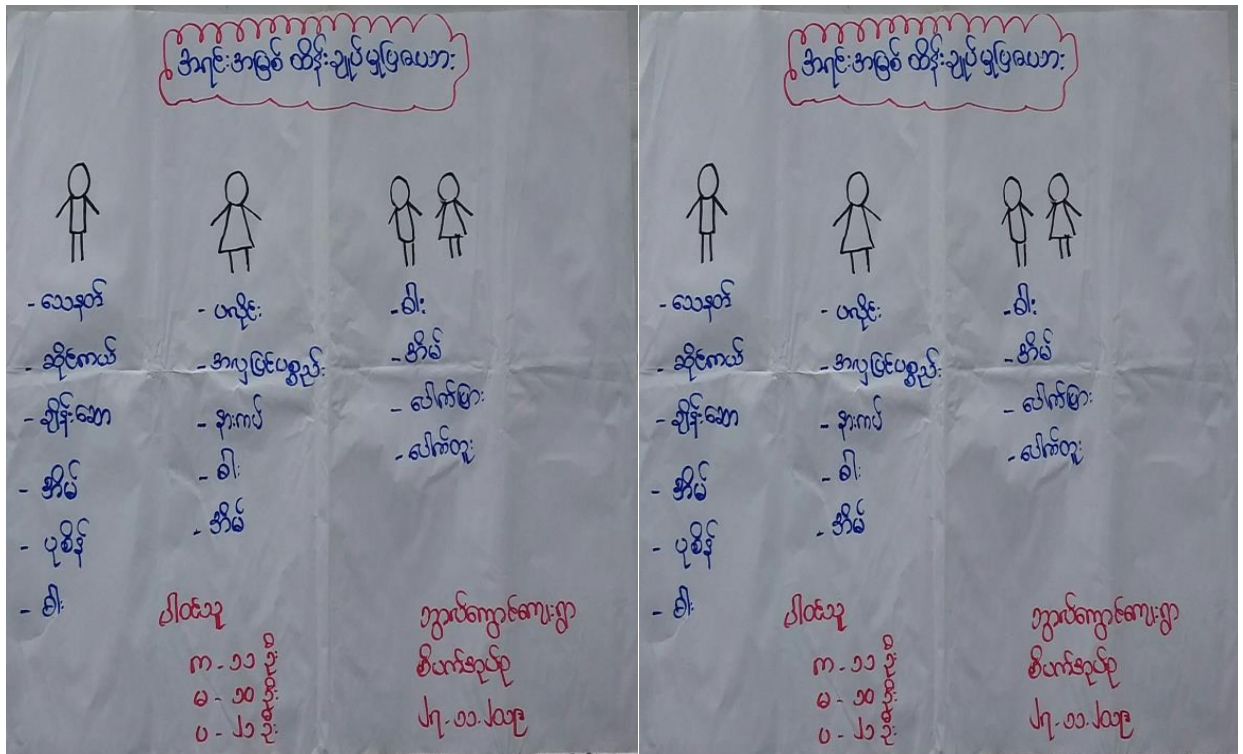 အရင်းအမြစ် ထိန်းချုပ်မှုပြဇယား
- သေနတ်
- ဆိုင်ကယ်
- ချိန်းဆော
- အိမ်
- ပုစိန်
- ဓါး
- ပလိုင်း
- အလှပြင်ပစ္စည်း
- နားကပ်
- ဓါး
- အိမ်
- ဓါး
- အိမ်
- ပေါက်ပြား
- ပေါက်တူး
ပါဝင်သူ
က - ၁၁ ဦး
မ - ၁၀ ဦး
ပ - ၂၁ ဦး
ကျေးရွာ
စီမံကိုအုပ်စု
၂၇.၁၁.၂၀၁၉
အရင်းအမြစ် ထိန်းချုပ်မှုပြဇယား
- သေနတ်
- ဆိုင်ကယ်
- ချိန်းဆော
- အိမ်
- ပုစိန်
- ဓါး
- ပလိုင်း
- အလှပြင်ပစ္စည်း
- နားကပ်
- ဓါး
- အိမ်
- ဓါး
- အိမ်
- ပေါက်ပြား
- ပေါက်တူး
ပါဝင်သူ
က - ၁၁ ဦး
မ - ၁၀ ဦး
ပ - ၂၁ ဦး
ကျေးရွာ
၂၇.၁၁.၂၀၁၉